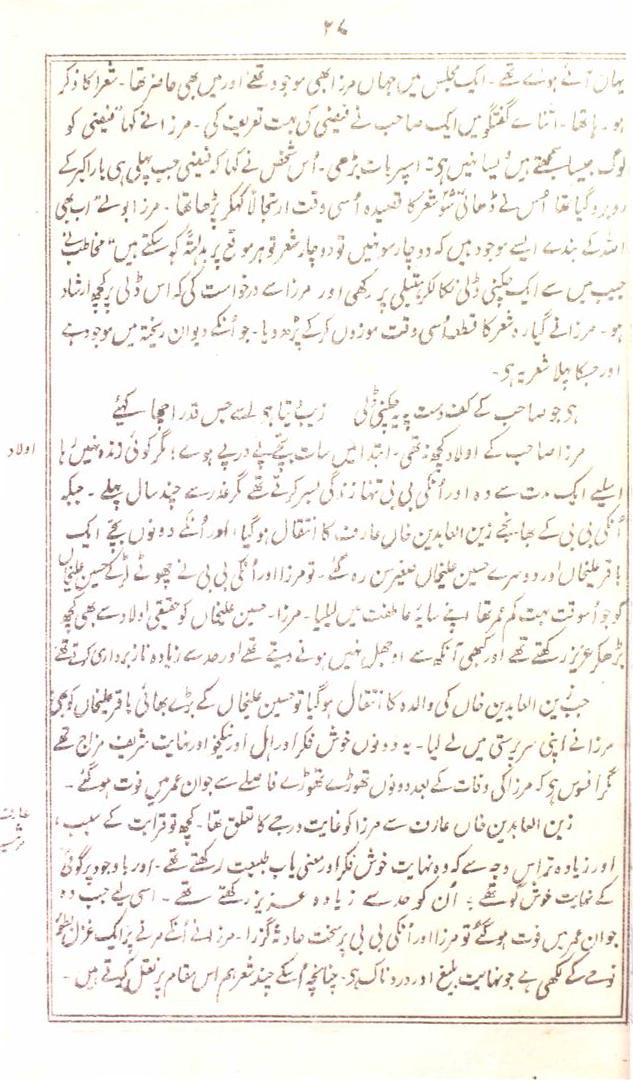 ۲۷
یہان آئے ہوئے تھے ۔ ایک مجلس میں جہاں مرزا بھی موجود تھے اور میں بھی حاضر تھا ۔ شعرا کا ذکر
ہو رہا تھا ۔ اثنائے گفتگو میں ایک صاحب نے فیضی کی بہت تعریف کی ۔ مرزا نے کہا "فیضی کو
لوگ جیسا سمجھتے ہیں ویسا نہیں ہی" اسپر بات بڑھی ۔ اُس شخص نے کہا کہ فیضی جب پہلی ہی بار اکبر کے
روبرو گیا تھا اُس نے ڈھائی سو شعر کا قصیدہ اُسی وقت ارتجالاً کہکر پڑھا تھا ۔ مرزا بولے "اب بھی
اللہ کے بندے ایسے موجود ہیں کہ دو چار سو نہیں تو دو چار شعر تو ہر موقع پر بداہۃً کہہ سکتے ہیں" مخاطب نے
جیب میں سے ایک چکنی ڈلی نکالکر ہتیلی پر رکھی اور مرزا سے درخواست کی کہ اس ڈلی پر کچھ ارشاد
ہو ۔ مرزا نے گیارہ شعر کا قطعہ اُسی وقت موزوں کر کے پڑھ دیا ۔ جو اُنکے دیوان ریختہ میں موجود ہے
اور جسکا پہلا شعر یہ ہی ۔
ہی جو صاحب کے کف دست پہ یہ چکنی ڈلی زیب دیتا ہی اسے جس قدر اچھا کہیے
اولاد
مرزا صاحب کے اولاد کچھ نہ تھی ۔ ابتدا میں سات بچے پے در پے ہوے ؛ مگر کوئی زندہ نہیں رہا
اسلیے ایک مدت سے وہ اور اُنکی بی بی تنہا زندگی بسر کرتے تھے مگر غدر سے چند سال پہلے ۔ جبکہ
اُنکی بی بی کے بھانجے زین العابدین خاں عارف کا انتقال ہوگیا ؛ اور اُنکے دونوں بچے ایک
باقر علیخاں اور دوسرے حسین علیخاں صغیر سن رہ گئے ۔ تو مرزا اور اُنکی بی بی نے چھوٹے لڑکے حسین علیخاں
کو جو اُسوقت بہت کم عمر تھا اپنے سایۂ عاطفت میں لے لیا ۔ مرزا ۔ حسین علیخاں کو حقیقی اولاد سے بھی کچھ
بڑھکر عزیز رکھتے تھے اور کبھی آنکھ سے اوجھل نہیں ہونے دیتے تھے اور حد سے زیادہ ناز برداری کرتے تھے
جب زین العابدین خاں کی والدہ کا انتقال ہو گیا تو حسین علیخاں کے بڑے بھائی باقر علیخاں کو بھی
مرزا نے اپنی سرپرستی میں لے لیا ۔ یہ دونوں خوش فکر اور اہل اور نیکخو اور نہایت شریف مزاج تھے
مگر افسوس ہی کہ مرزا کی وفات کے بعد دونوں تھوڑے تھوڑے فاصلے سے جوان عمر میں فوت ہو گئے ۔
زین العابدین خاں عارف سے مرزا کو غایت درجے کا تعلق تھا ۔ کچھ تو قرابت کے سبب ،
اور زیادہ تر اس وجہ سے کہ وہ نہایت خوش فکر اور معنی یاب طبیعت رکھتے تھے ۔ اور باوجود پرگوئی
کے نہایت خوش گو تھے ؛ اُن کو حد سے زیادہ عزیز رکھتے تھے ۔ اسی لیے جب وہ
جوان عمر میں فوت ہو گئے تو مرزا اور اُنکی بی بی پر سخت حادثہ گزرا ۔ مرزا نے اُنکے مرنے پر ایک غزل بطور
نوحے کے لکھی ہے جو نہایت بلیغ اور دردناک ہی ۔ چنانچہ اُسکے چند شعر ہم اس مقام پر نقل کرتے ہیں ۔